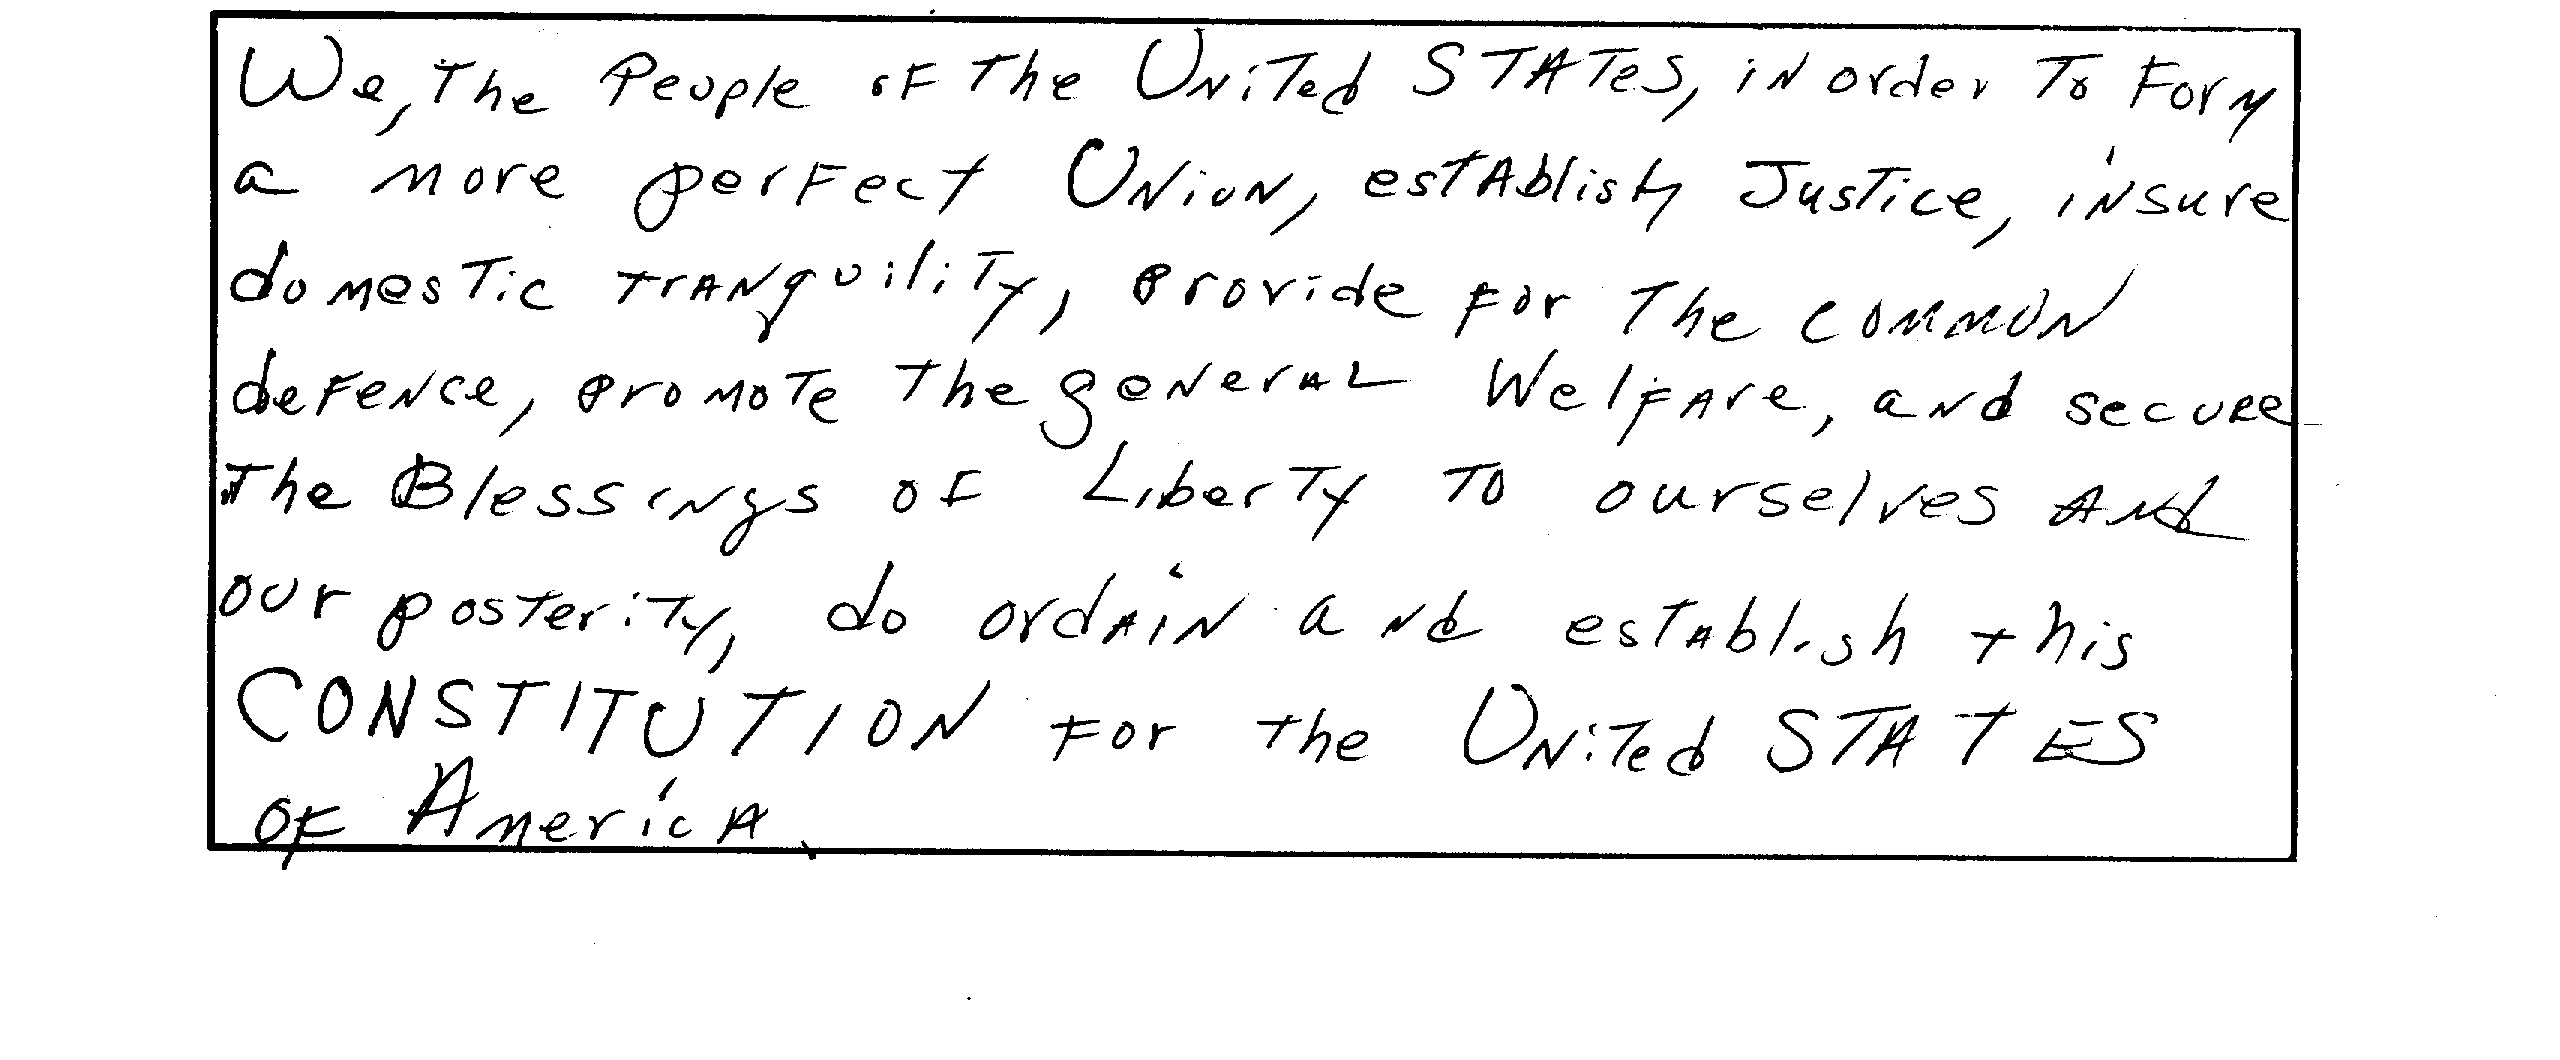 We, the People of the United States, in order to form
a more perfect Union, establish Justice, insure
domestic tranquility, provide for the common
defence, promote the general Welfare, and secure
the Blessings of Liberty to ourselves and
our posterity, do ordain and establish this
CONSTITUTION for the United STATES
of America.